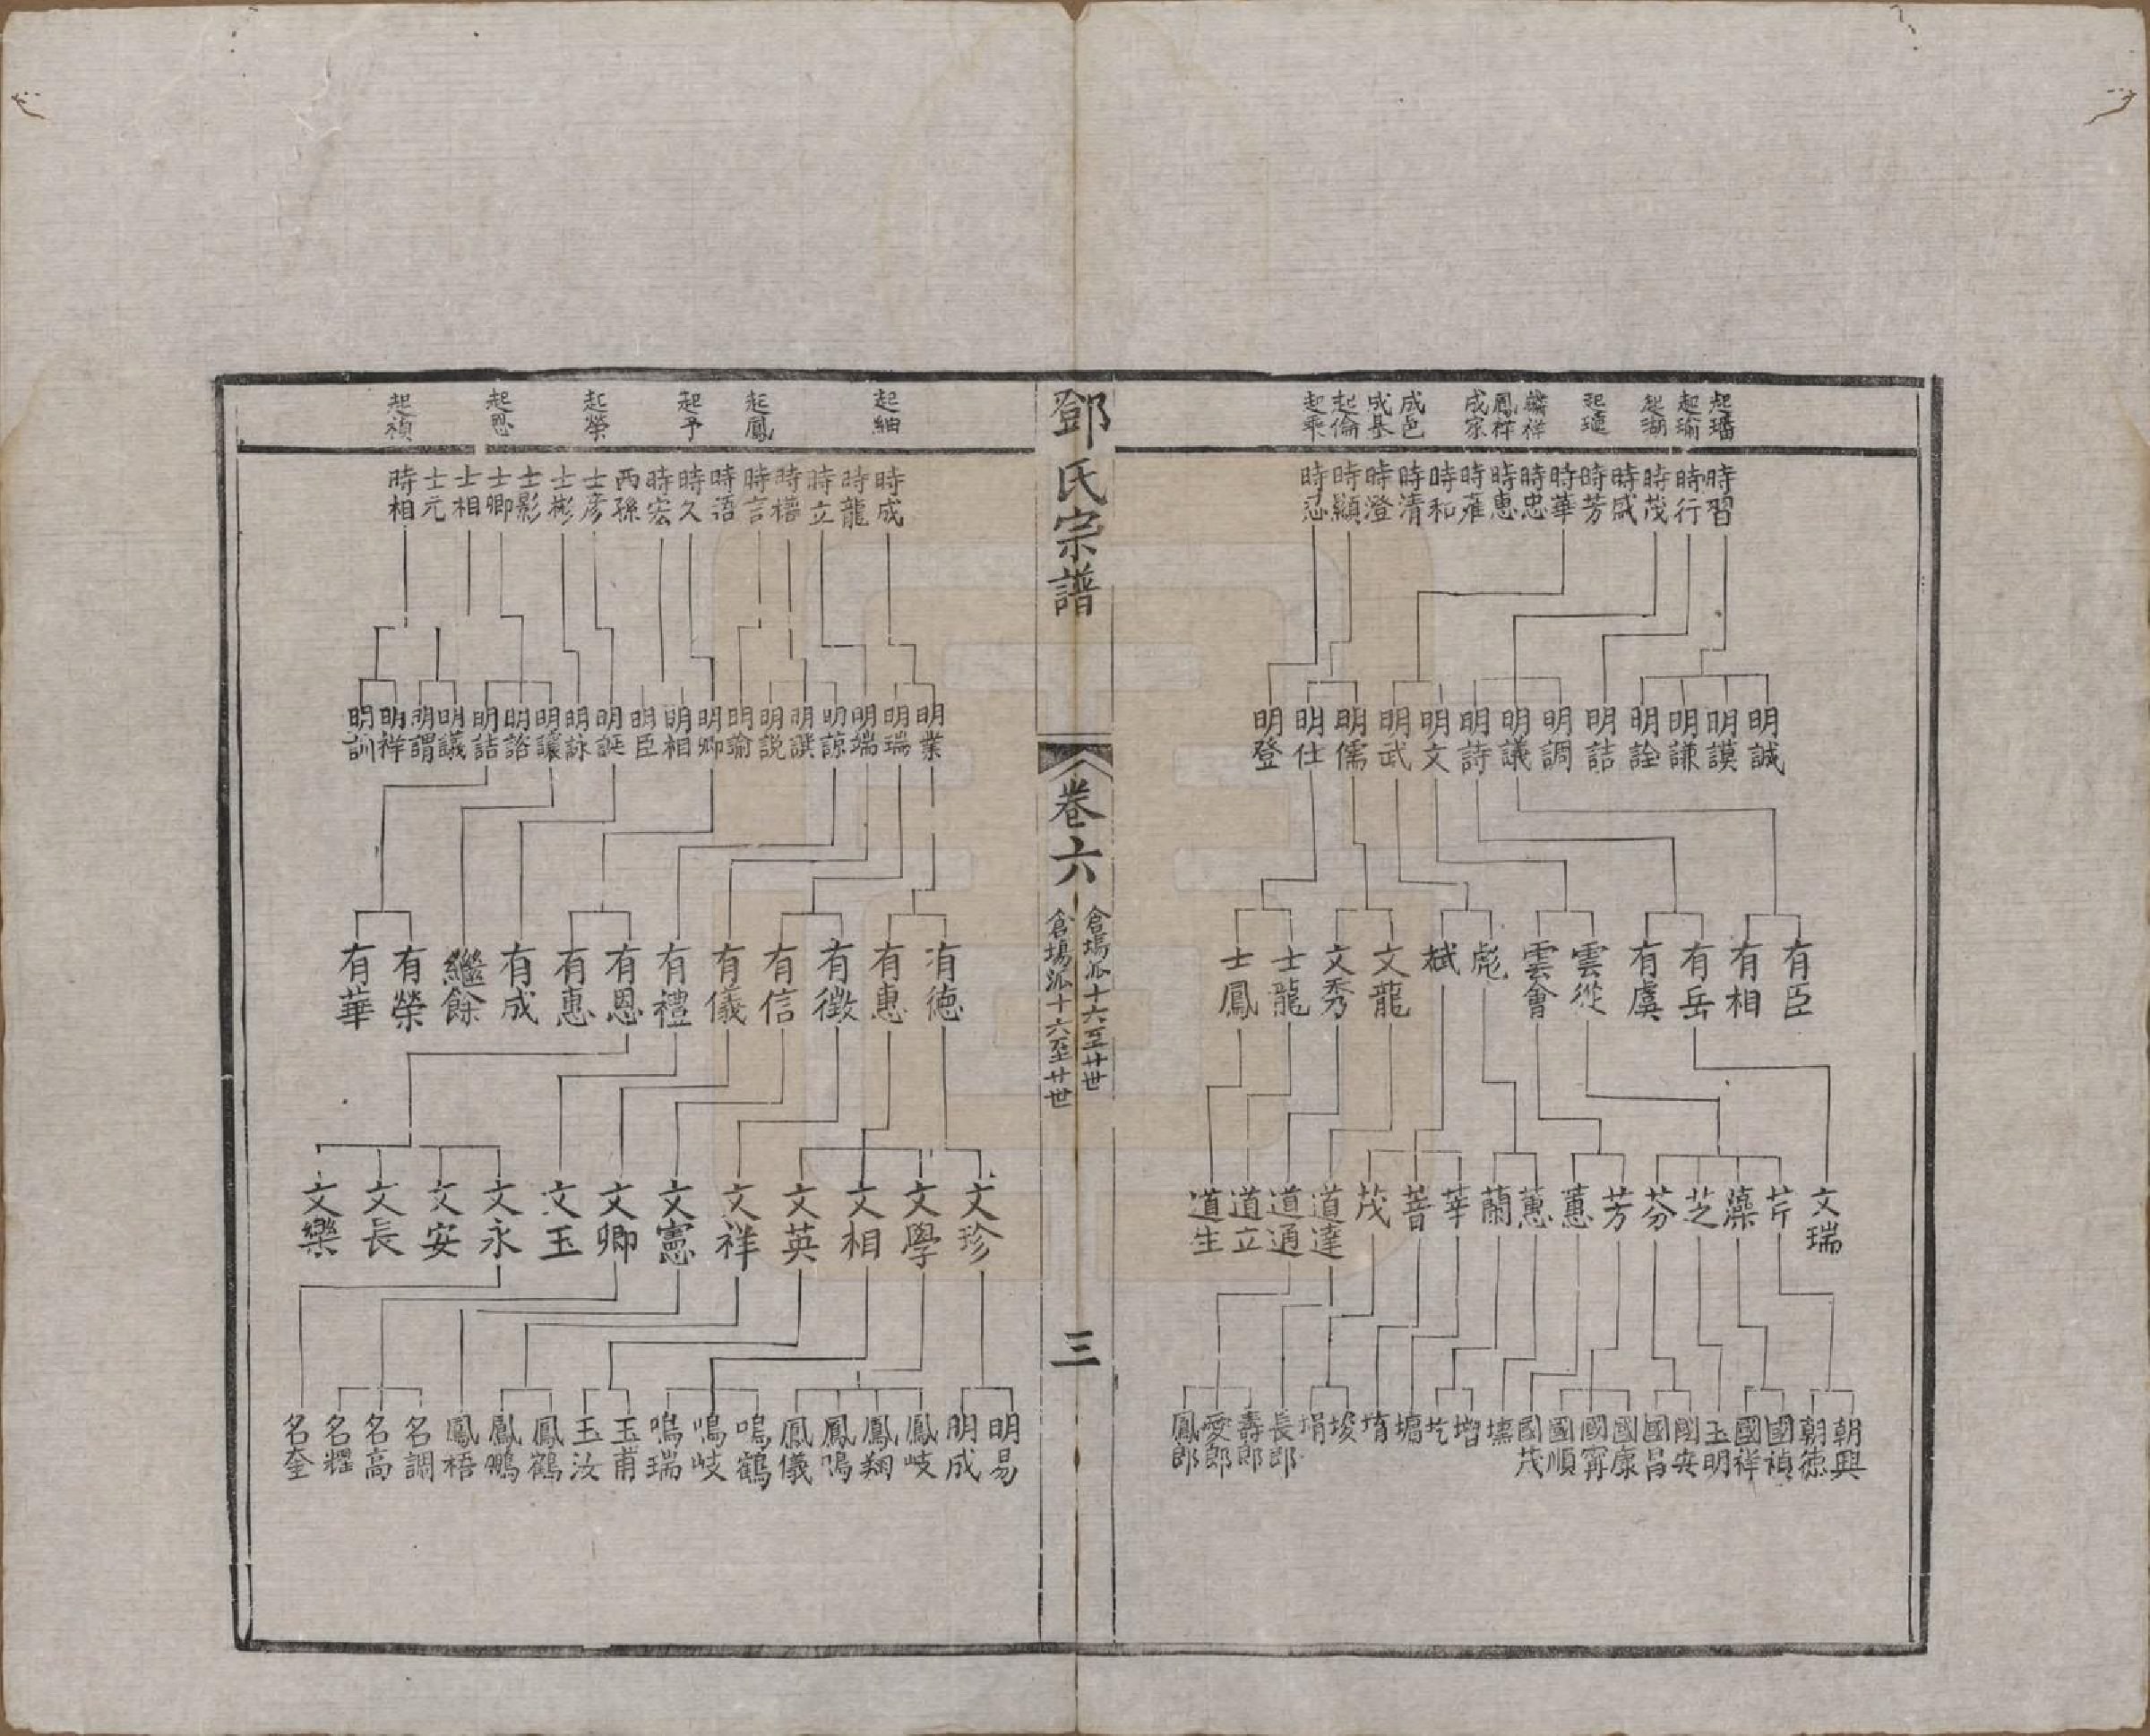 起璠 起瑜 起瑚 起璉 麟祥 鳳祥 成家 成邑 成基 起倫 起乘
時習 時行 時茂 時盛 時芳 時華 時忠 時惠 時雍 時和 時清 時澄 時顯 時忍
明誠 明謨 明謙 明詮 明詰 明調 明議 明詩 明文 明武 明儒 明仕 明登
有臣 有相 有岳 有虞 雲從 雲會 彪 斌 文龍 文秀 士龍 士鳳
文瑞 芹 藻 芝 芬 芳 蕙 蕙 蘭 莘 菩 茂 道達 道通 道立 道生
朝興 朝德 國禎 國祥 玉明 國安 國昌 國康 國甯 國順 國茂 壎 增 圪 塘 堉 埈 埍 長郎 壽郎 愛郎 鳳郎
鄧氏宗譜
卷六
倉塢派十六至廿世
倉塢派十六至廿世
三
起紬 起鳳 起予 起榮 起恩 起禎
時成 時龍 時立 時櫓 時言 時語 時久 時宏 西孫 士彥 士彬 士影 士卿 士相 士元 時相
明業 明瑞 明端 明諒 明譔 明説 明諭 明卿 明相 明臣 明誕 明詠 明讓 明諮 明詰 明議 明謂 明祥 明訓
有德 有惠 有徵 有信 有儀 有禮 有恩 有惠 有成 繼餘 有榮 有華
文珍 文學 文相 文英 文祥 文憲 文卿 文玉 文永 文安 文長 文樂
明易 明成 鳳岐 鳳翔 鳳鳴 鳳儀 鳴鶴 鳴岐 鳴瑞 玉甫 玉汝 鳳鶴 鳳鵬 鳳梧 名調 名高 名耀 名奎